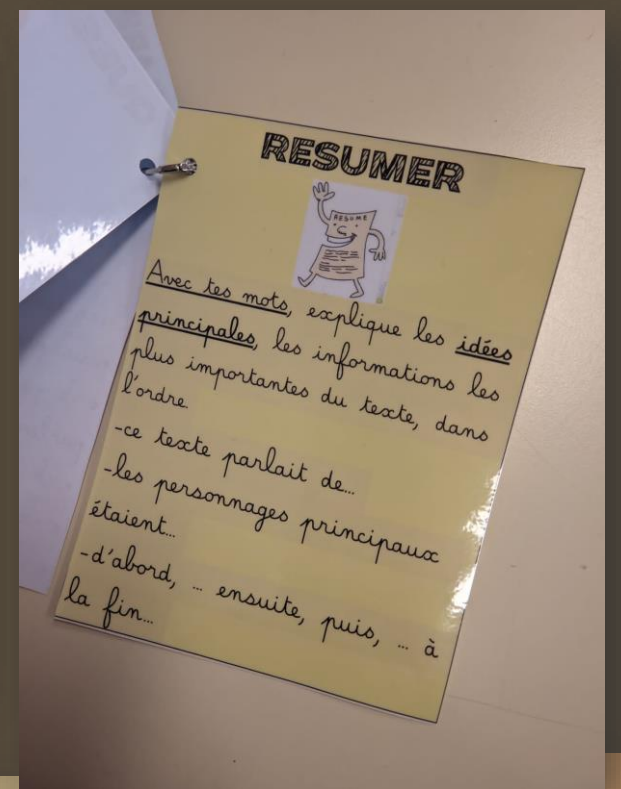 RESUMER
RESUME
Avec tes mots, explique les idées
principales, les informations les
plus importantes du texte, dans
l'ordre.
-ce texte parlait de...
-les personnages principaux
étaient...
-d'abord, ... ensuite, puis, ... à
la fin...